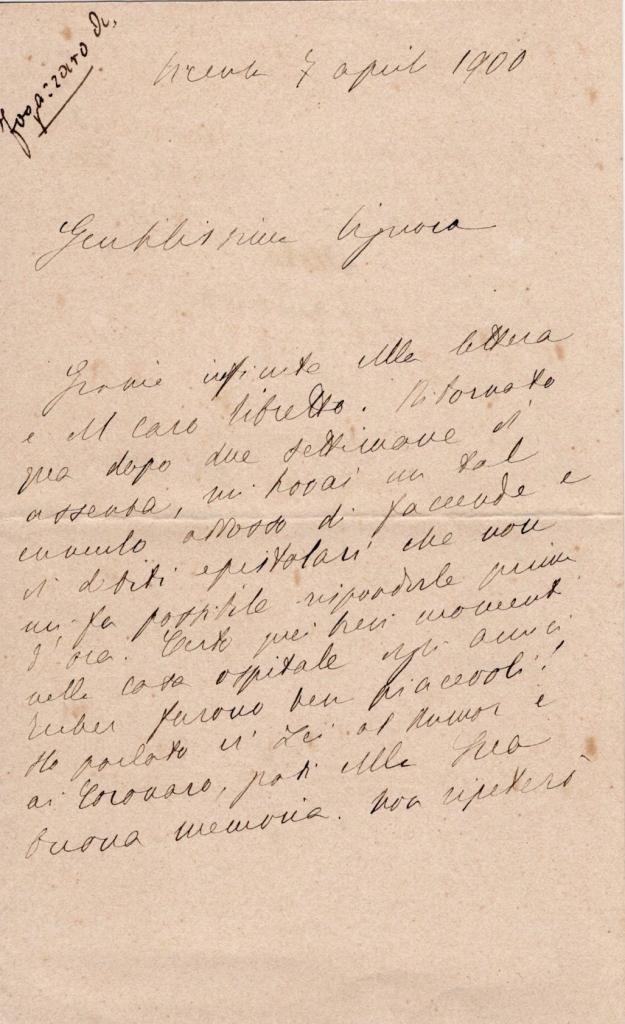 Fogazzaro A.
Vicenza 7 april 1900
Gentilissima Signora
Grazie infinite della lettera
e del caro libretto. Ritornato
qua dopo due settimane di
assenza, mi trovai un tal
cumulo addosso di faccende e
di debiti epistolari che non
mi fu possibile risponderle prima
d'ora. Certo quei brevi momenti
nella casa ospitale degli amici
furono ben piacevoli!
Ho parlato di Lei al Rumor e
ai Coronaro, grati alla Sua
buona memoria. Non ripeterò